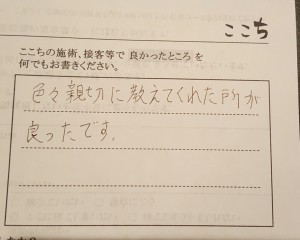 ここち
ここちの施術、接客等で良かったところを
何でもお書きください。
色々親切に教えてくれた所が
良ったです.